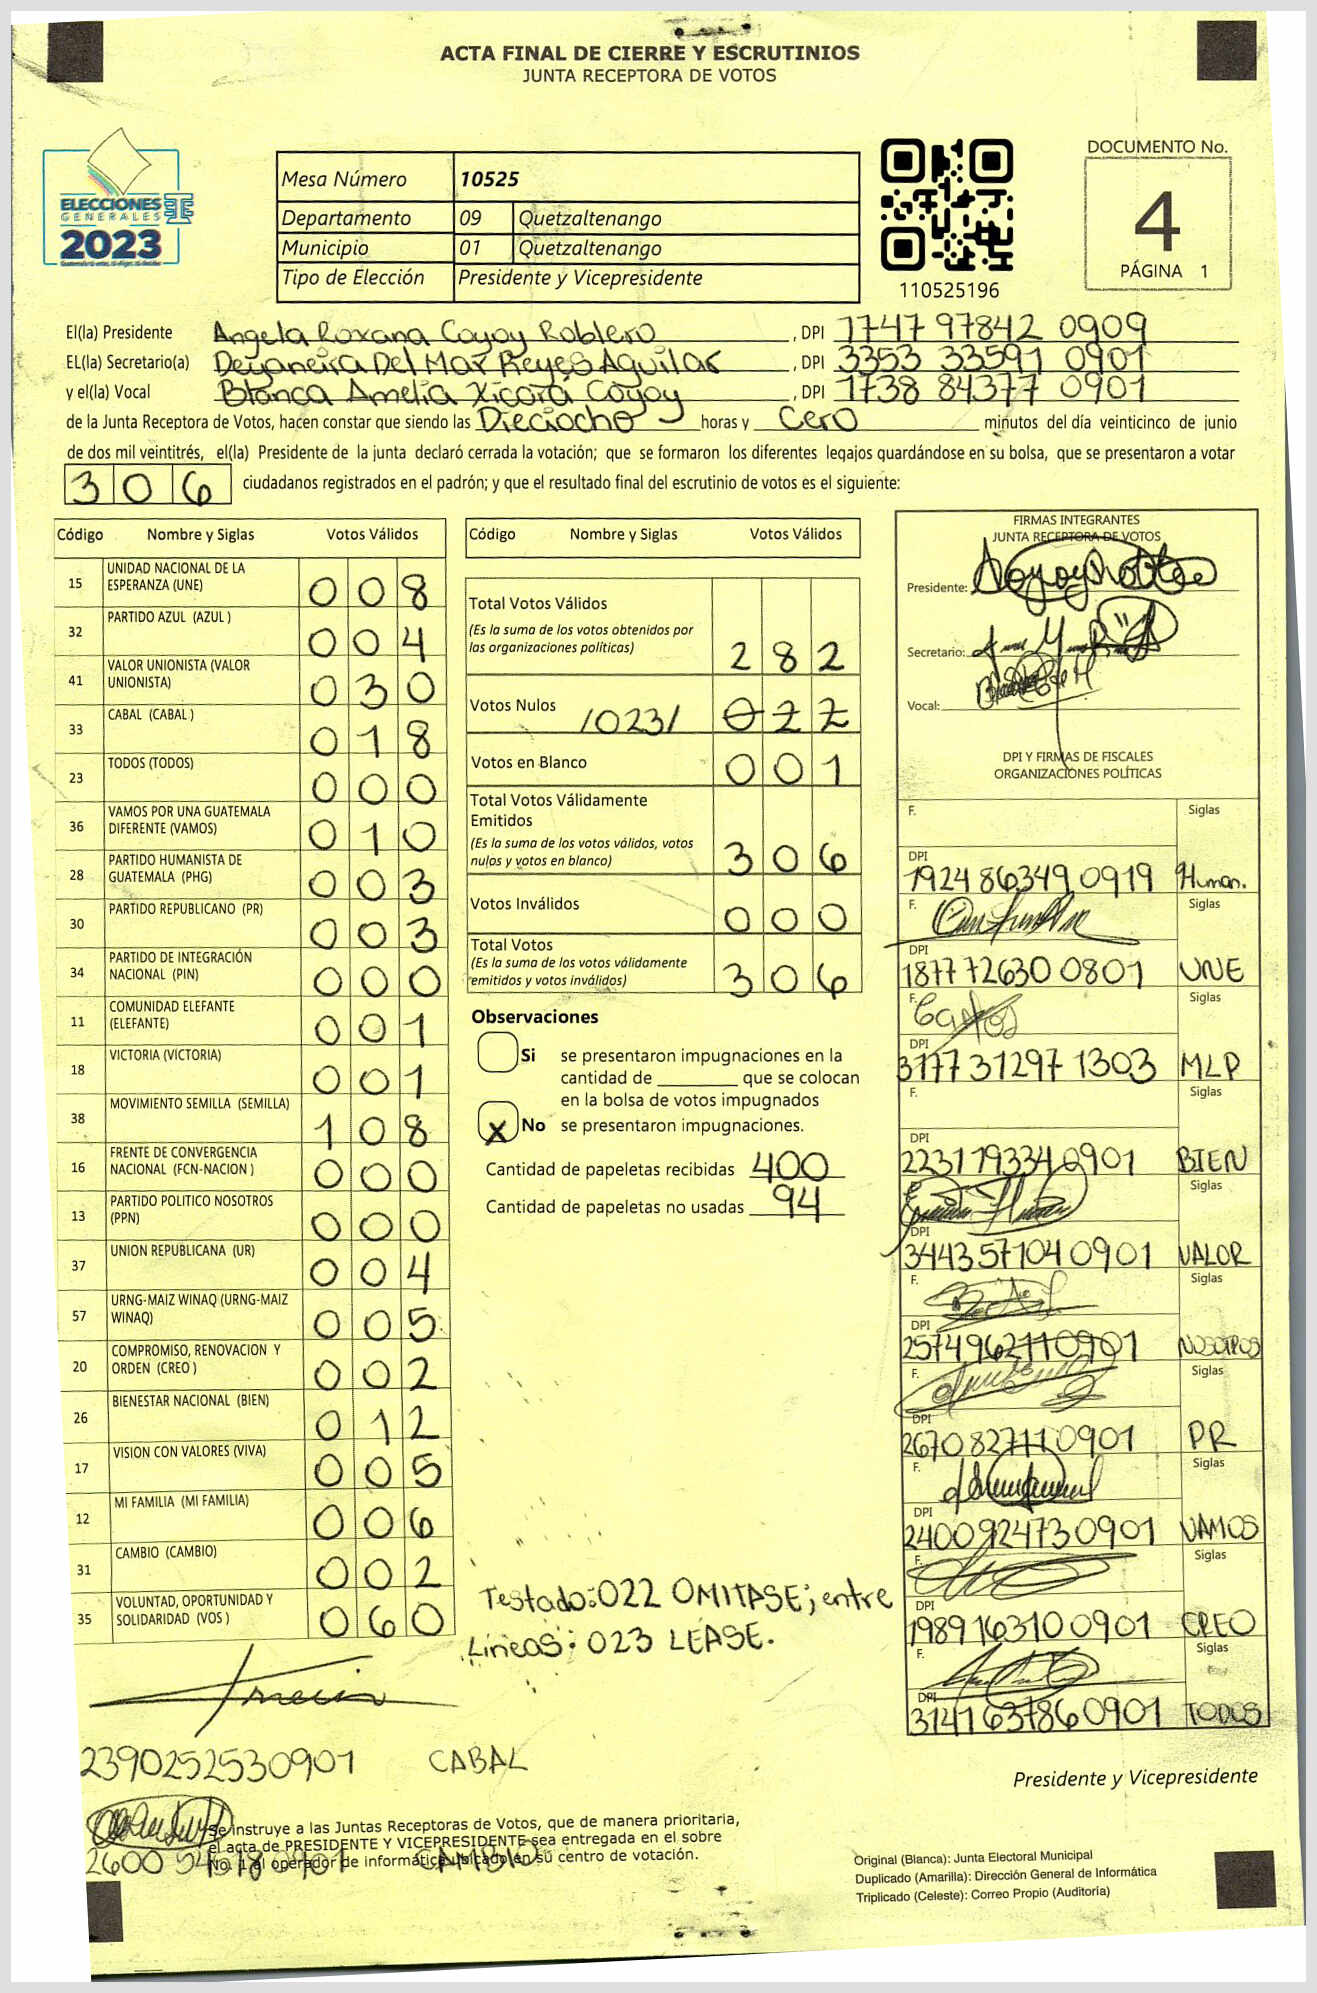 ACTA FINAL DE CIERRE Y ESCRUTINIOS
JUNTA RECEPTORA DE VOTOS
ELECCIONES
GENERALES
2023
Mesa Número 10525
Departamento 09 Quetzaltenango
Municipio 01 Quetzaltenango
Tipo de Elección Presidente y Vicepresidente
110525196
DOCUMENTO No.
4
PÁGINA 1
El(la) Presidente Angela Roxana Coyoy Roblero, DPI 1747 97842 0909
EL(la) Secretario(a) Deyaneira Del Mar Reyes Aguilar, DPI 3353 33591 0901
y el(la) Vocal Blanca Amelia Xicará Coyoy, DPI 1738 84377 0901
de la Junta Receptora de Votos, hacen constar que siendo las Dieciocho horas y Cero minutos del día veinticinco de junio
de dos mil veintitrés, el(la) Presidente de la junta declaró cerrada la votación; que se formaron los diferentes legajos guardándose en su bolsa, que se presentaron a votar
306 ciudadanos registrados en el padrón; y que el resultado final del escrutinio de votos es el siguiente:
Código Nombre y Siglas Votos Válidos
15 UNIDAD NACIONAL DE LA ESPERANZA (UNE) 008
32 PARTIDO AZUL (AZUL ) 004
41 VALOR UNIONISTA (VALOR UNIONISTA) 030
33 CABAL (CABAL ) 018
23 TODOS (TODOS) 000
36 VAMOS POR UNA GUATEMALA DIFERENTE (VAMOS) 010
28 PARTIDO HUMANISTA DE GUATEMALA (PHG) 003
30 PARTIDO REPUBLICANO (PR) 003
34 PARTIDO DE INTEGRACIÓN NACIONAL (PIN) 000
11 COMUNIDAD ELEFANTE (ELEFANTE) 001
18 VICTORIA (VICTORIA) 001
38 MOVIMIENTO SEMILLA (SEMILLA) 108
16 FRENTE DE CONVERGENCIA NACIONAL (FCN-NACION ) 000
13 PARTIDO POLITICO NOSOTROS (PPN) 000
37 UNION REPUBLICANA (UR) 004
57 URNG-MAIZ WINAQ (URNG-MAIZ WINAQ) 005
20 COMPROMISO, RENOVACION Y ORDEN (CREO ) 002
26 BIENESTAR NACIONAL (BIEN) 012
17 VISION CON VALORES (VIVA) 005
12 MI FAMILIA (MI FAMILIA) 006
31 CAMBIO (CAMBIO) 002
35 VOLUNTAD, OPORTUNIDAD Y SOLIDARIDAD (VOS ) 060
Código Nombre y Siglas Votos Válidos
Total Votos Válidos
(Es la suma de los votos obtenidos por
las organizaciones políticas) 282
Votos Nulos /023/ 022
Votos en Blanco 001
Total Votos Válidamente
Emitidos
(Es la suma de los votos válidos, votos
nulos y votos en blanco) 306
Votos Inválidos 000
Total Votos
(Es la suma de los votos válidamente
emitidos y votos inválidos) 306
Observaciones
Si se presentaron impugnaciones en la
cantidad de ________ que se colocan
en la bolsa de votos impugnados
X No se presentaron impugnaciones.
Cantidad de papeletas recibidas 400
Cantidad de papeletas no usadas 94
Testado: 022 OMITASE; entre
Líneas: 023 LEASE.
FIRMAS INTEGRANTES
JUNTA RECEPTORA DE VOTOS
Presidente:
Secretario:
Vocal:
DPI Y FIRMAS DE FISCALES
ORGANIZACIONES POLÍTICAS
F. Siglas
DPI
1924 86349 0919 Human.
F. Siglas
DPI
1877 72630 0801 UNE
F. Siglas
Carlos
DPI
3177 31297 1303 MLP
F. Siglas
DPI
2231 79334 0901 BIEN
Siglas
DPI
3443 57104 0901 VALOR
F. Siglas
DPI
2574 96211 0901 NOSOTROS
F. Siglas
DPI
2670 82711 0901 PR
F. Siglas
DPI
2400 92473 0901 VAMOS
F. Siglas
DPI
1989 16310 0901 CREO
F. Siglas
DPI
3141 63786 0901 TODOS
2390252530901 CABAL
CAMBIO
Presidente y Vicepresidente
Se instruye a las Juntas Receptoras de Votos, que de manera prioritaria,
el acta de PRESIDENTE Y VICEPRESIDENTE sea entregada en el sobre
No. 1 al operador de informática ubicado en su centro de votación.
Original (Blanca): Junta Electoral Municipal
Duplicado (Amarilla): Dirección General de Informática
Triplicado (Celeste): Correo Propio (Auditoría)